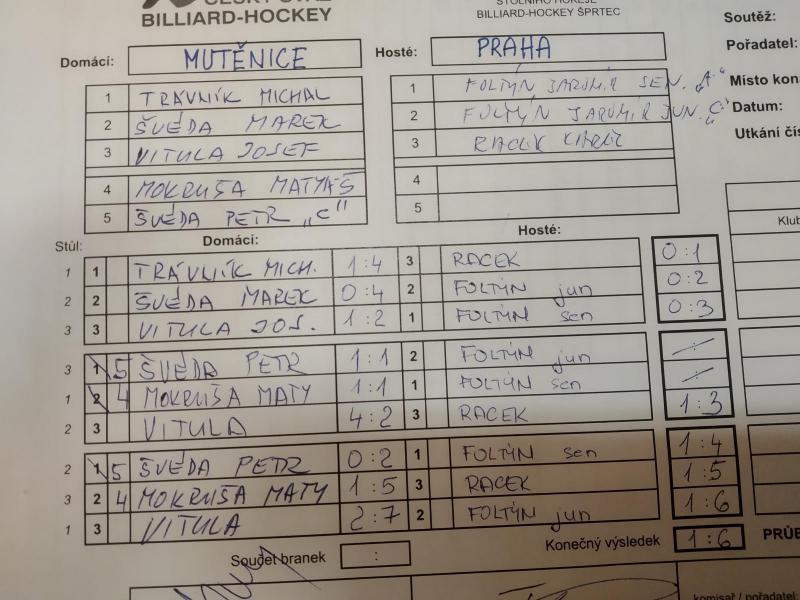 ČESKÝ SVAZ
BILLIARD-HOCKEY
STOLNÍHO HOKEJE
BILLIARD-HOCKEY ŠPRTEC
Soutěž:
Domácí: MUTĚNICE Hosté: PRAHA Pořadatel:
1 TRÁVNÍK MICHAL 1 FOLTÝN JAROMÍR SEN. „A“ Místo kon
2 ŠVÉDA MAREK 2 FOLTÝN JAROMÍR JUN. „C“ Datum:
3 VITULA JOSEF 3 Utkání čís
4 MOKRUŠA MATYÁŠ 4
5 ŠVÉDA PETR „C“ 5
Klub
Stůl: Domácí: Hosté:
1 1 TRÁVNÍK MICH. 1:4 3 RACEK 0:1
2 2 ŠVÉDA MAREK 0:4 2 FOLTÝN jun 0:2
3 3 VITULA JOS. 1:2 1 FOLTÝN sen 0:3
3 1 5 ŠVÉDA PETR 1:1 2 FOLTÝN jun
1 2 4 MOKRUŠA MATY 1:1 1 FOLTÝN sen
2 3 VITULA 4:2 3 RACEK 1:3
2 1 5 ŠVÉDA PETR 0:2 1 FOLTÝN sen 1:4
3 2 4 MOKRUŠA MATY 1:5 3 RACEK 1:5
1 3 VITULA 2:7 2 FOLTÝN jun 1:6
Součet branek : Konečný výsledek 1:6 PRŮB
komisař / pořadatel: